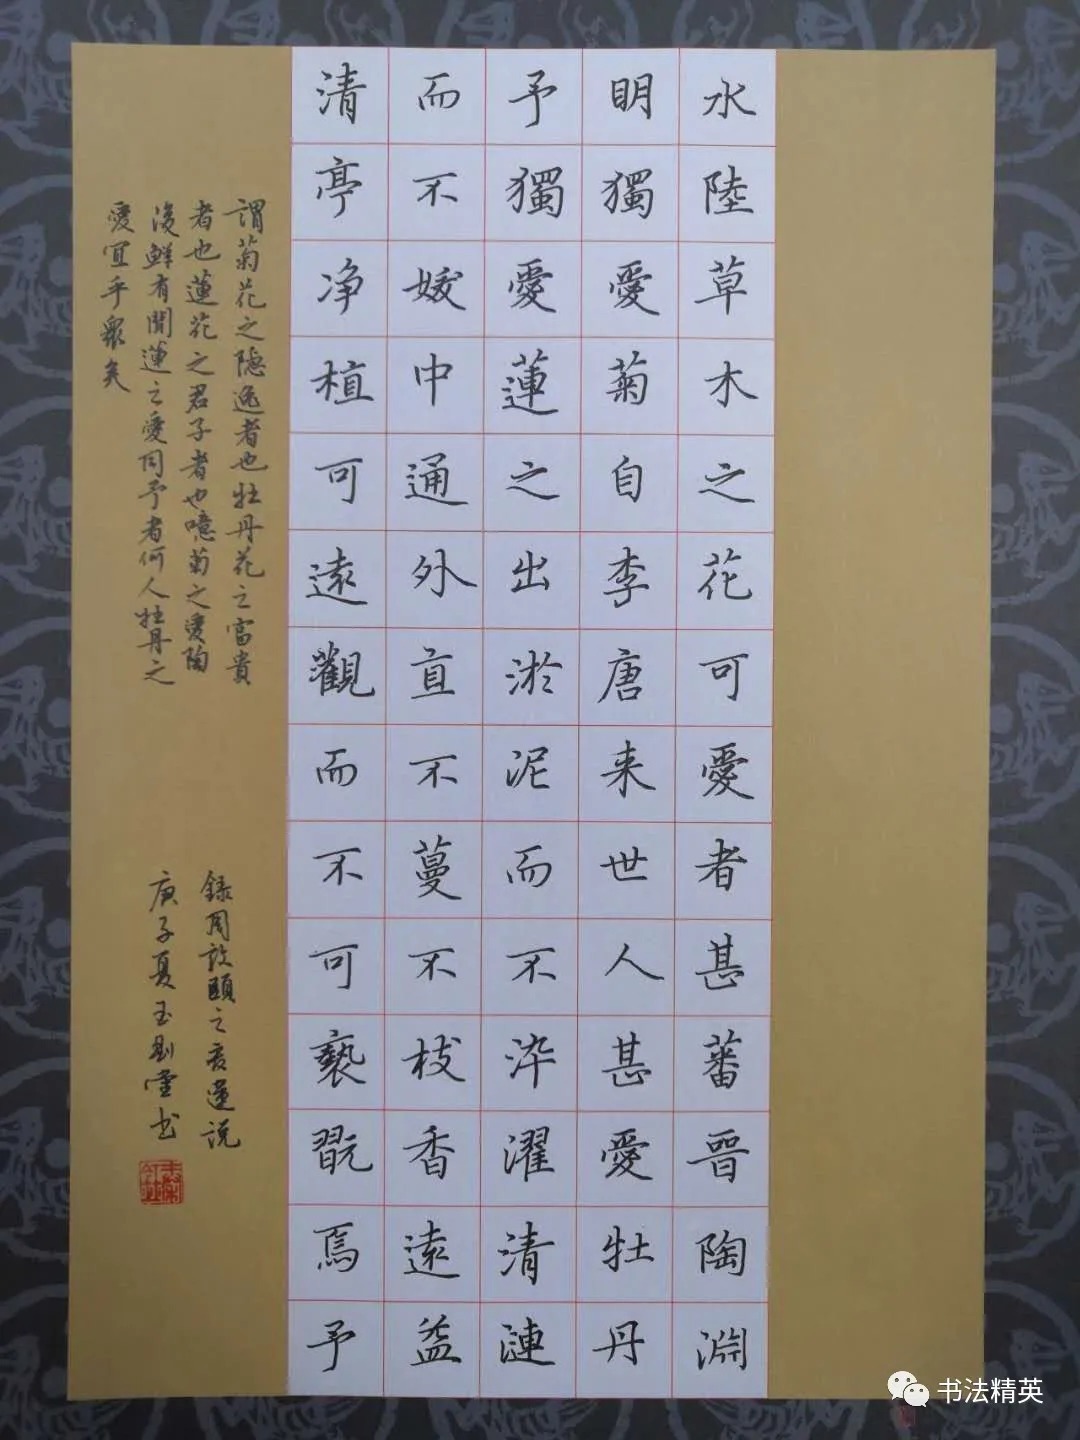 水陸草木之花可愛者甚蕃晉陶淵
明獨愛菊自李唐来世人甚愛牡丹
予獨愛蓮之出淤泥而不染濯清漣
而不媛中通外直不蔓不枝香遠益
清亭净植可遠觀而不可褻翫焉予
謂菊花之隐逸者也牡丹花之富貴
者也蓮花之君子者也噫菊之愛陶
後鮮有聞蓮之愛同予者何人牡丹之
愛宜乎衆矣
録周敦頤之爱蓮説
庚子夏玉书
书法精英